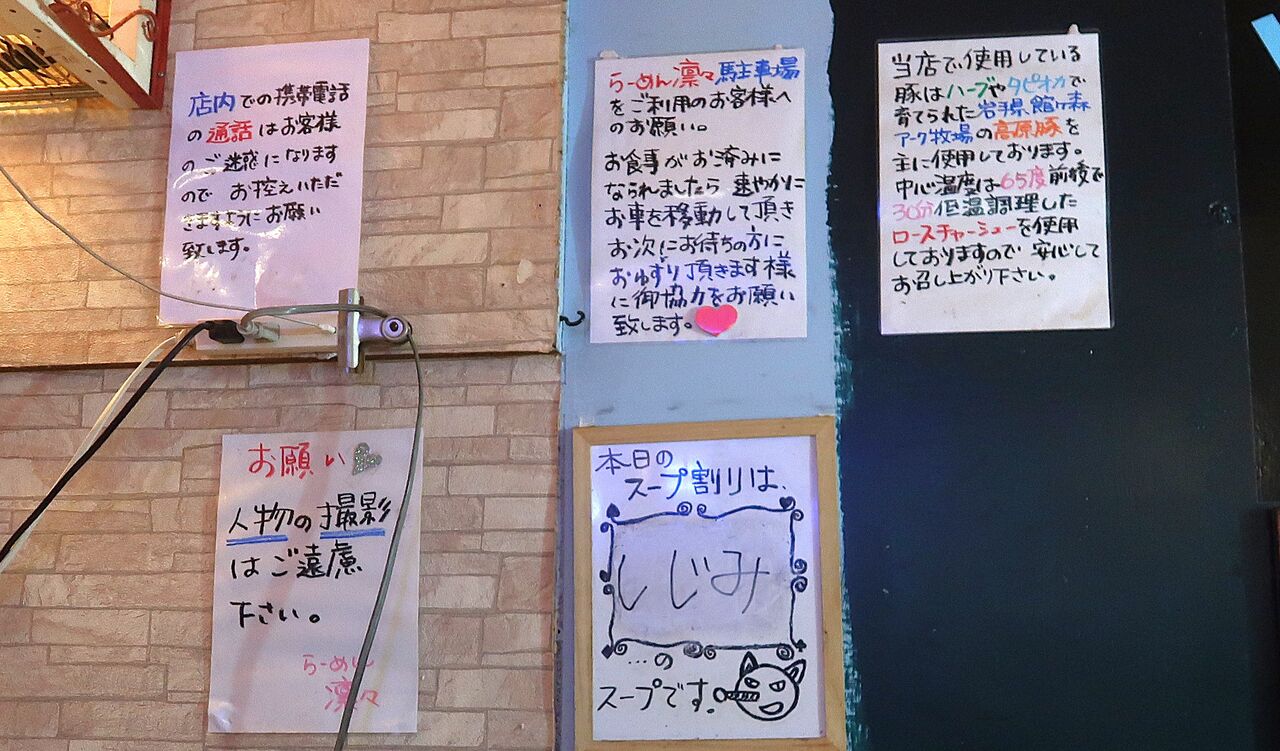 店内での携帯電話
の通話はお客様
のご迷惑になります
ので お控えいただ
きますようにお願い
致します。
らーめん凛々駐車場
をご利用のお客様へ
のお願い。
お食事がお済みに
なられましたら 速やかに
お車を移動して頂き
お次にお待ちの方に
おゆずり頂きます様
に御協力をお願い
致します。
当店で使用している
豚はハーブやタピオカで
育てられた岩手県館ヶ森
アーク牧場の高原豚を
主に使用しております。
中心温度は65度前後で
30分低温調理した
ローストチャーシューを使用
しておりますので 安心して
お召し上がり下さい。
お願い
人物の撮影
はご遠慮
下さい。
らーめん
凛々
本日の
スープ割りは、
しじみ
…の
スープです。